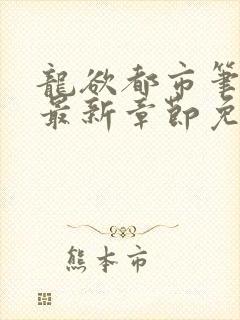 龍欲都市筆
最新章節免
熊本市